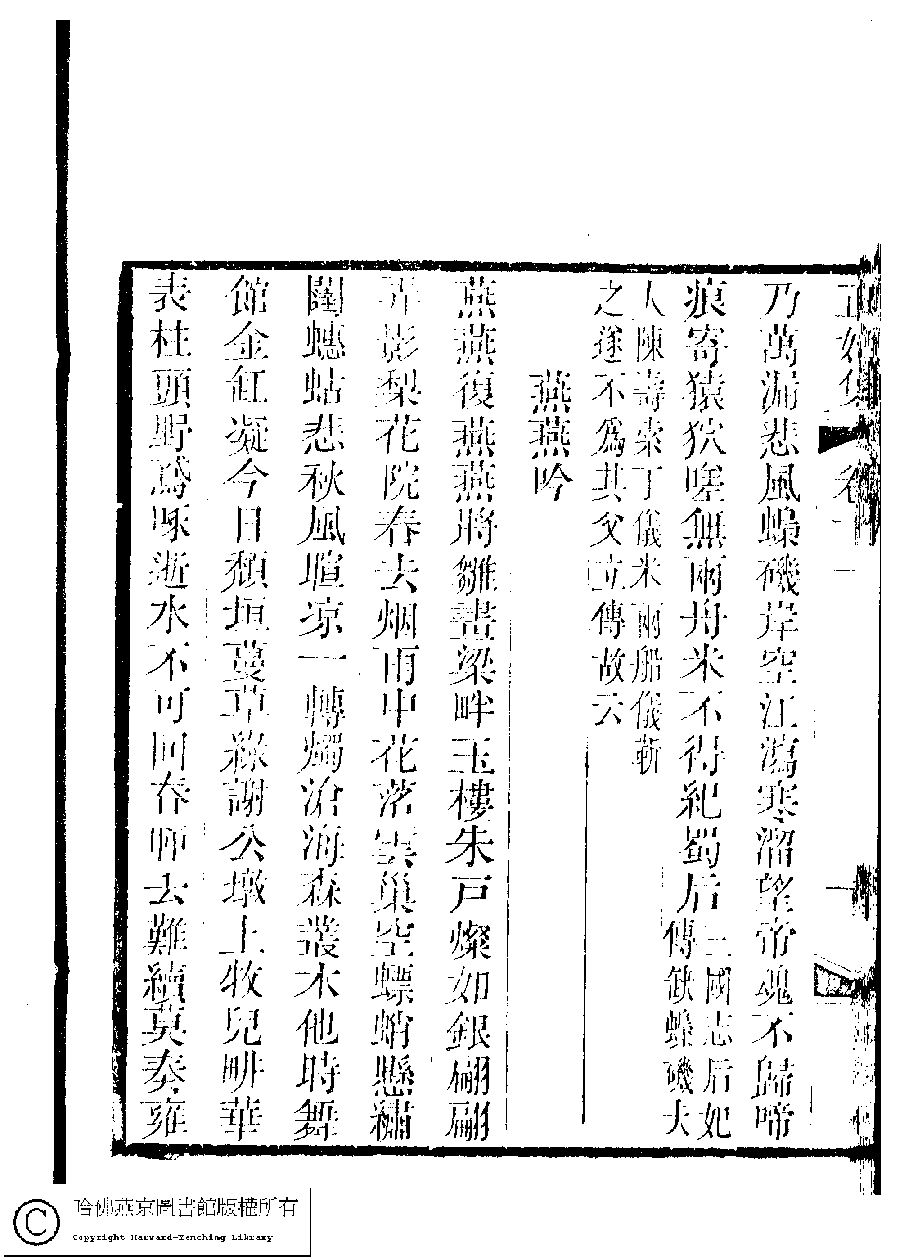 正始集 卷
乃萬漏悲風蟂磯岸空江瀉寒溜望帝魂不歸啼
痕寄猿狖嗟無兩舟米不得紀蜀后
三國志后妃
傳缺蟂磯夫
人陳壽索丁儀米兩船儀靳
之遂不爲其父立傳故云
燕燕吟
燕燕復燕燕將雛畫梁畔玉樓朱戸燦如銀翩翩
弄影梨花院春去烟雨中花落雲巢空蠨蛸懸繡
闥蟪蛄悲秋風暄凉一轉燭滄海森叢木他時舞
館金釭凝今日頹垣蔓草綠謝公墩上牧兒畊華
表柱頭野鳶啄逝水不可回春歸去難續莫奏雍
哈佛燕京圖書館版權所有
Copyright Harvard-Yenching Library